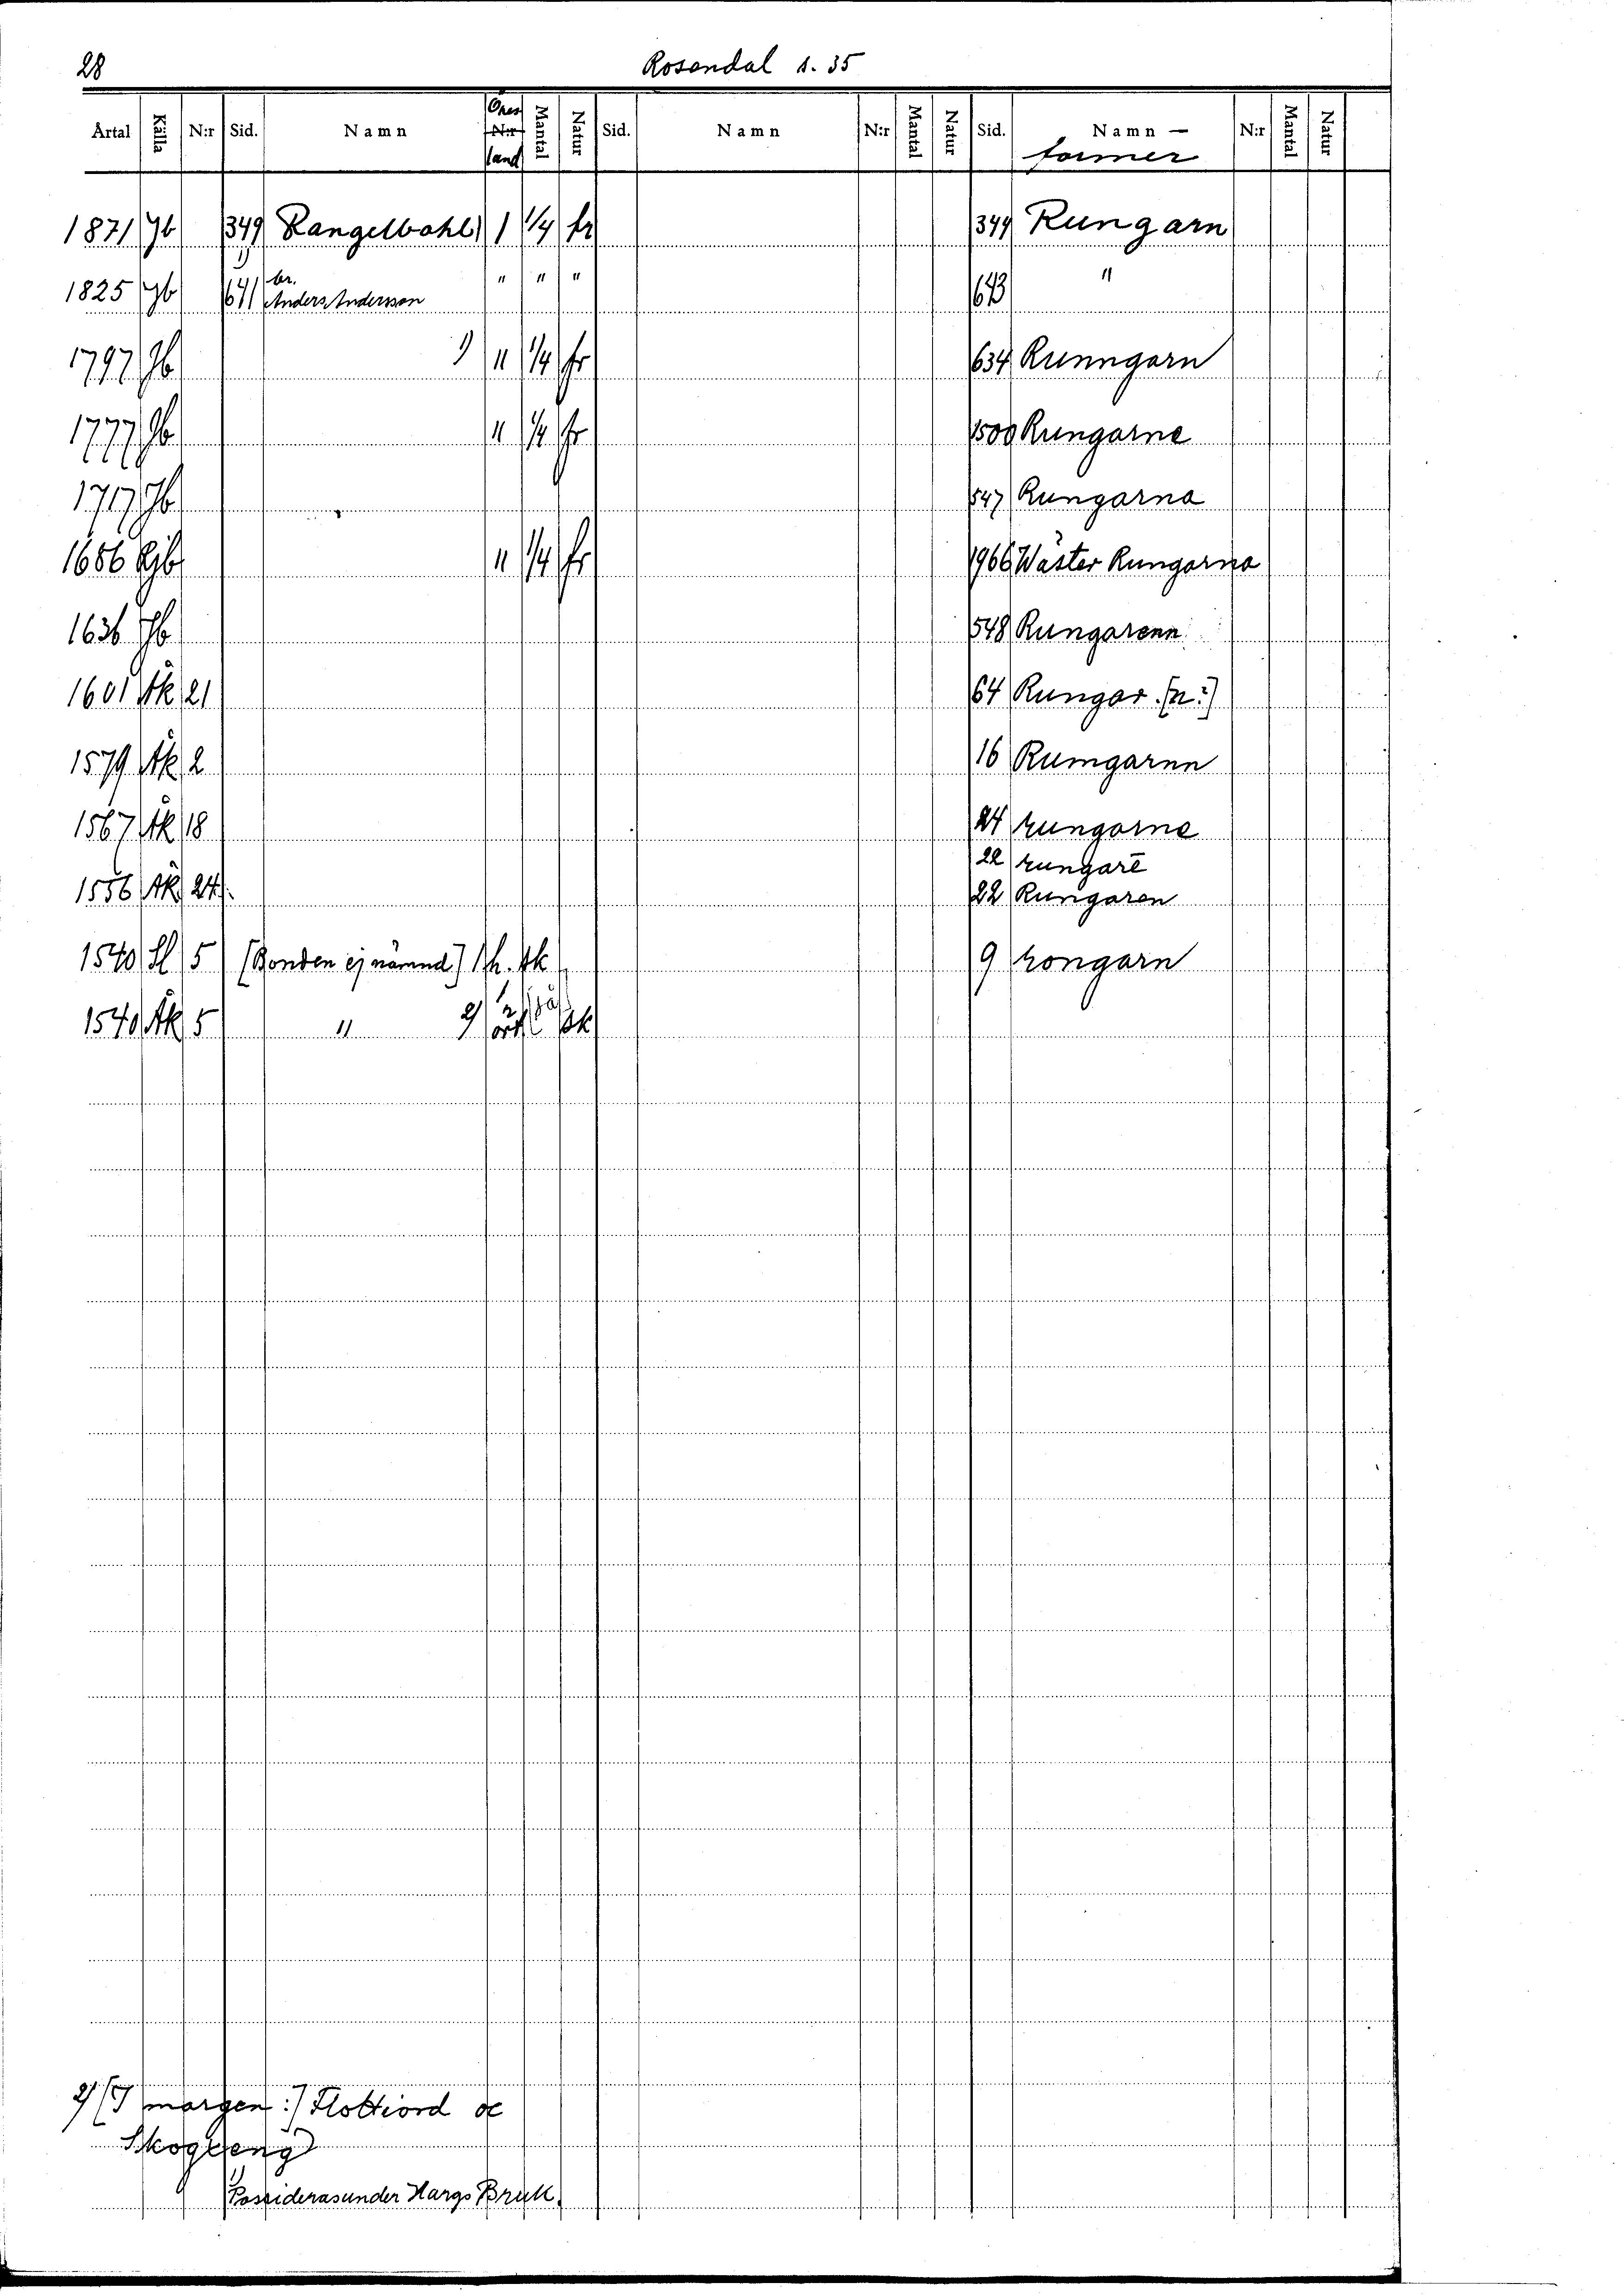 28 Rosendal s. 35
Årtal Källa N:r Sid. Namn Öres N:r land Mantal Natur Sid. Namn N:r Mantal Natur Sid. Namn – former N:r Mantal Natur
1871 Jb 349 Rangelbohl 1 1/4 fr 349 Rungarn
1825 Jb 641 1) br. Anders Andersson " " " 643 "
1797 Jb 1) " 1/4 fr 634 Runngarn
1777 Jb " 1/4 fr 1500 Rungarne
1717 Jb 547 Rungarna
1686 Kjb " 1/4 fr 1966 Wäster Rungarna
1636 Jb 548 Rungarenn
1601 Åk 21 64 Rungar [n?]
1579 Åk 2 16 Rumgarnn
1567 Åk 18 24 rungarne
22 rungarē
1556 Åk 24 22 Rungaren
1540 Sl 5 [Bonden ej nämnd] 1 h. Åk 9 rongarn
1540 Åk 5 " 2) 1/2 Sk
2) [I margen:] Flottiord oc
Skogleng
1) Possideras under Hargs Bruk.